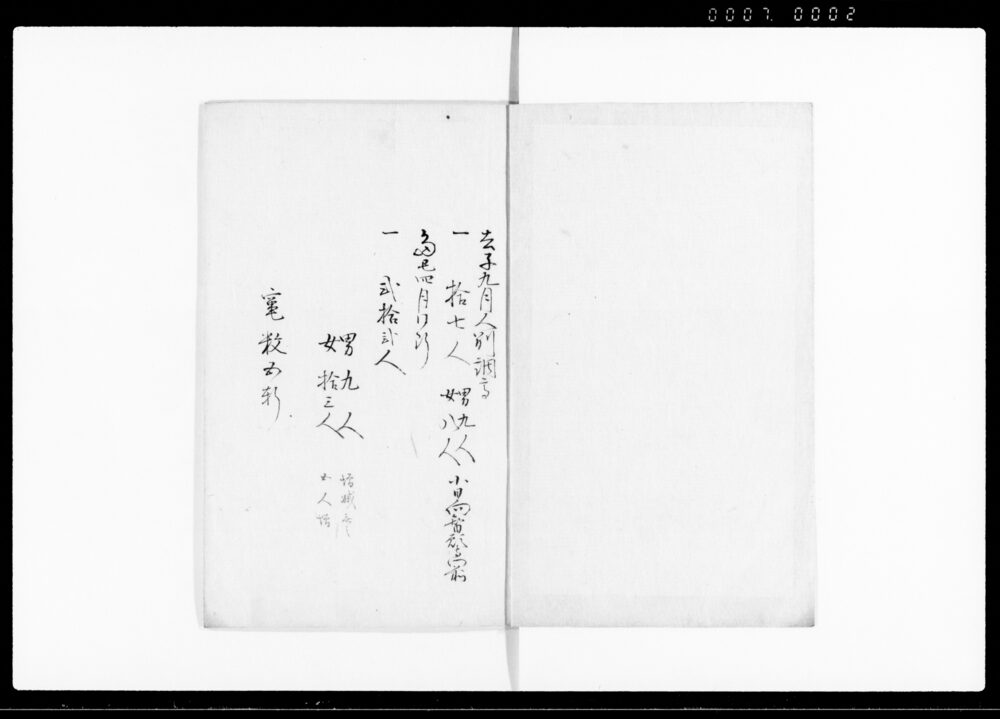 0007. 0002
去子九月人別調高
一 拾七人
男九人
女八人
小日向
四月
一 弐拾弐人
男九人
女拾三人
増減
五人増
竃数五軒